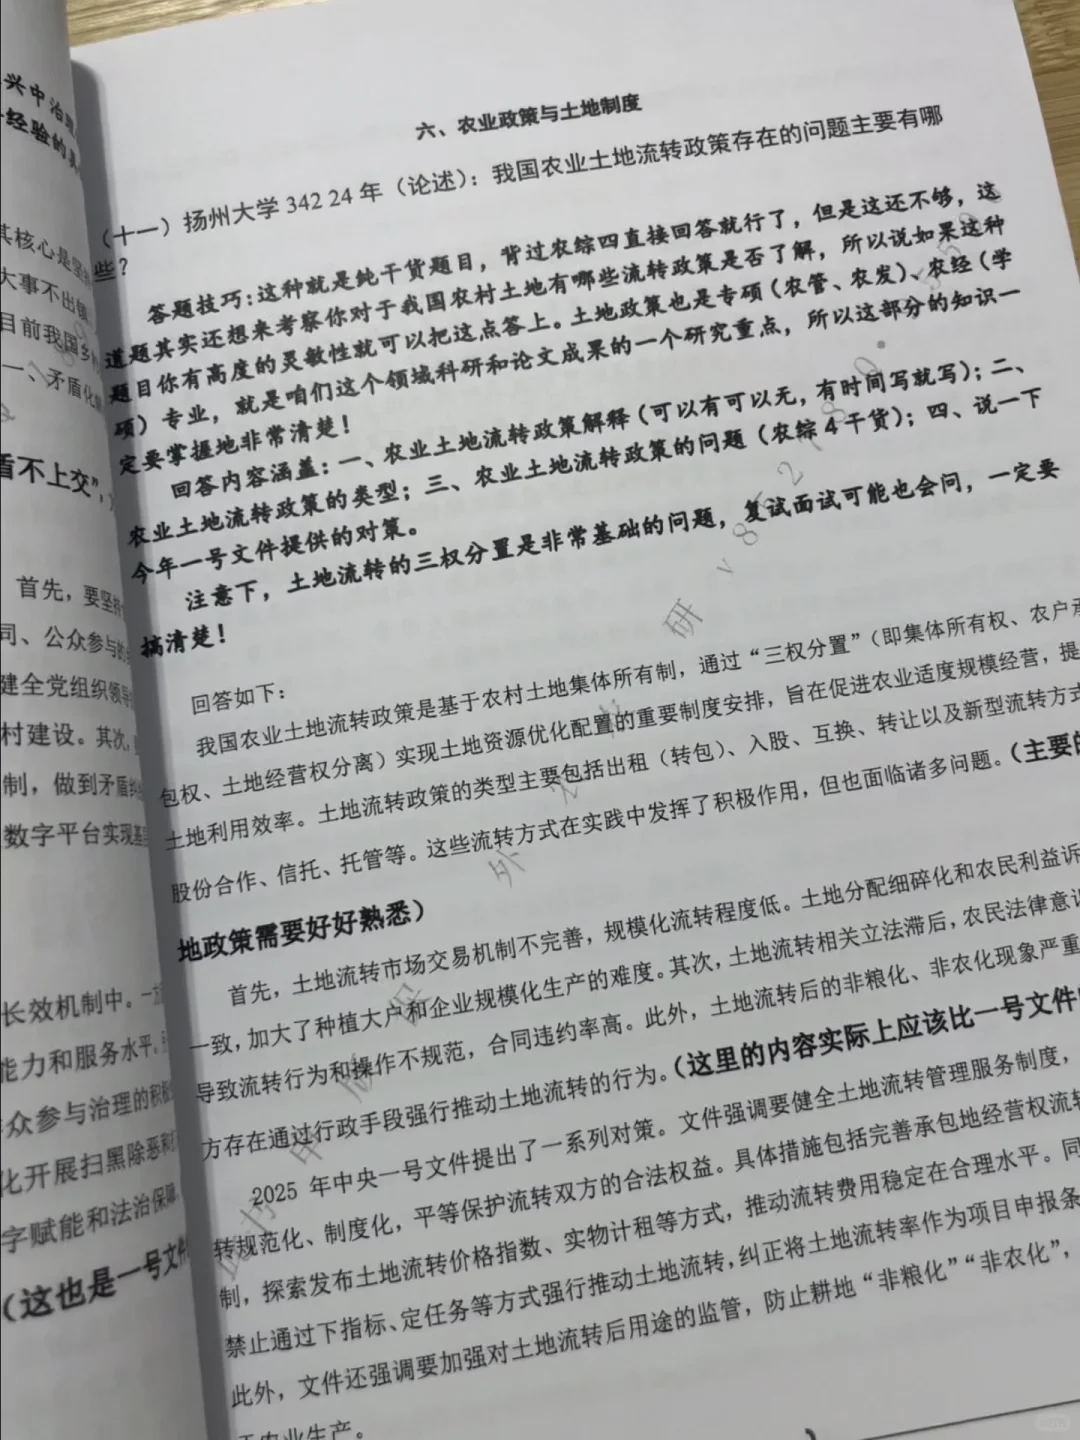 兴中治理
经验的具
其核心是坚持
大事不出镇
目前我国乡村
一、矛盾化解
盾不上交”，
首先，要坚持
司、公众参与的
健全党组织领导
村建设。其次，
制，做到矛盾纠纷
数字平台实现基层
长效机制中。一
能力和服务水平。
众参与治理的积极
化开展扫黑除恶和
字赋能和法治保障
（这也是一号文件
六、农业政策与土地制度
（十一）扬州大学 342 24 年（论述）：我国农业土地流转政策存在的问题主要有哪
些？
答题技巧：这种就是纯干货题目，背过农综四直接回答就行了，但是这还不够，这
道题其实还想来考察你对于我国农村土地有哪些流转政策是否了解，所以说如果这种
题目你有高度的灵敏性就可以把这点答上。土地政策也是专硕（农管、农发）、农经（学
硕）专业，就是咱们这个领域科研和论文成果的一个研究重点，所以这部分的知识一
定要掌握地非常清楚！
回答内容涵盖：一、农业土地流转政策解释（可以有可以无，有时间写就写）；二、
农业土地流转政策的类型；三、农业土地流转政策的问题（农综 4 干货）；四、说一下
今年一号文件提供的对策。
注意下，土地流转的三权分置是非常基础的问题，复试面试可能也会问，一定要
搞清楚！
回答如下：
我国农业土地流转政策是基于农村土地集体所有制，通过“三权分置”（即集体所有权、农户承
包权、土地经营权分离）实现土地资源优化配置的重要制度安排，旨在促进农业适度规模经营，提
土地利用效率。土地流转政策的类型主要包括出租（转包）、入股、互换、转让以及新型流转方式
股份合作、信托、托管等。这些流转方式在实践中发挥了积极作用，但也面临诸多问题。（主要的
地政策需要好好熟悉）
首先，土地流转市场交易机制不完善，规模化流转程度低。土地分配细碎化和农民利益诉
一致，加大了种植大户和企业规模化生产的难度。其次，土地流转相关立法滞后，农民法律意识
导致流转行为和操作不规范，合同违约率高。此外，土地流转后的非粮化、非农化现象严重
方存在通过行政手段强行推动土地流转的行为。（这里的内容实际上应该比一号文件
2025 年中央一号文件提出了一系列对策。文件强调要健全土地流转管理服务制度，
转规范化、制度化，平等保护流转双方的合法权益。具体措施包括完善承包地经营权流转
制，探索发布土地流转价格指数、实物计租等方式，推动流转费用稳定在合理水平。同
禁止通过下指标、定任务等方式强行推动土地流转，纠正将土地流转率作为项目申报条
此外，文件还强调要加强对土地流转后用途的监管，防止耕地“非粮化”“非农化”，
于农业生产。